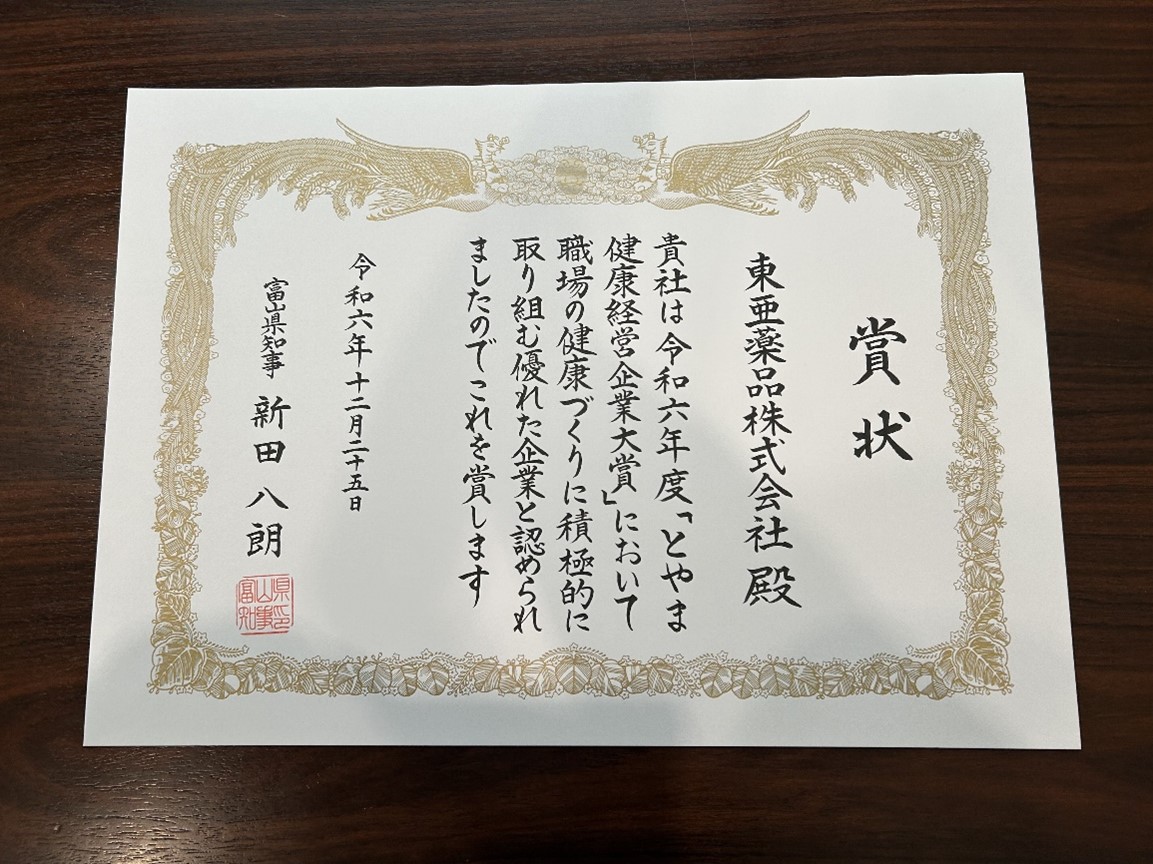 賞状
東亜薬品株式会社 殿
貴社は令和六年度「とやま
健康経営企業大賞」において
職場の健康づくりに積極的に
取り組む優れた企業と認められ
ましたのでこれを賞します
令和六年十二月二十五日
富山県知事 新田八朗
富山県知事印